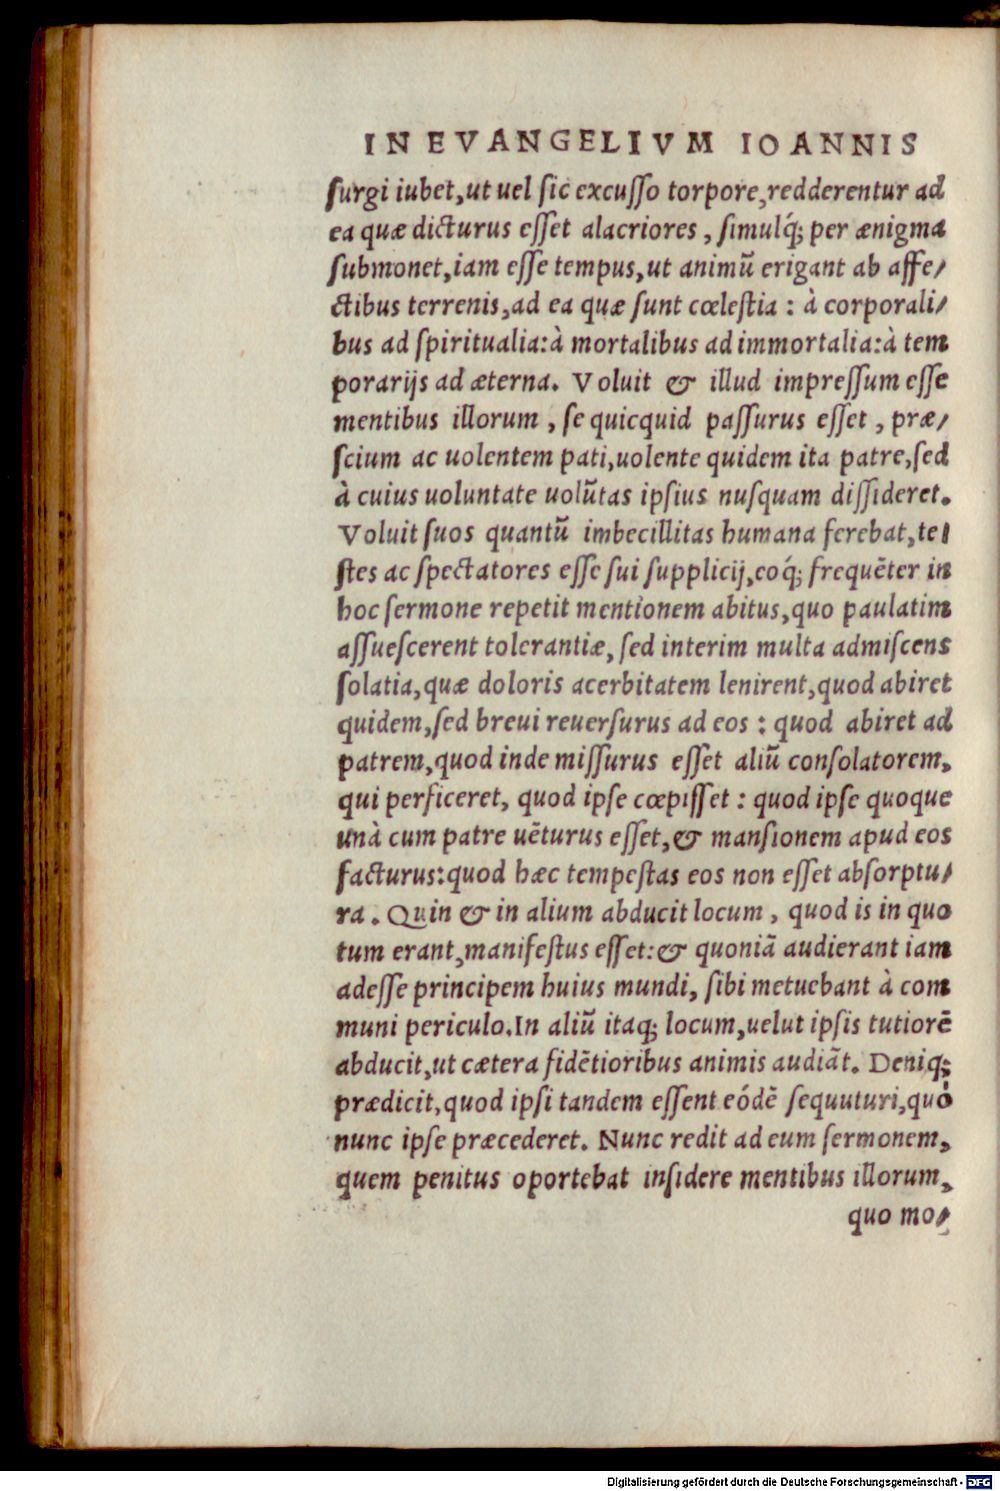 IN EVANGELIVM IOANNIS
surgi iubet,ut uel sic excusso torpore,redderentur ad
ea quæ dicturus esset alacriores , simulq́; per ænigma
submonet,iam esse tempus,ut animũ erigant ab affe/
ctibus terrenis,ad ea quæ sunt cœlestia : à corporali/
bus ad spiritualia:à mortalibus ad immortalia:à tem
porarijs ad æterna. Voluit & illud impressum esse
mentibus illorum , se quicquid passurus esset , præ/
scium ac uolentem pati,uolente quidem ita patre,sed
à cuius uoluntate uolũtas ipsius nusquam dissideret.
Voluit suos quantũ imbecillitas humana ferebat,te/
stes ac spectatores esse sui supplicij,eoq́; frequẽter in
hoc sermone repetit mentionem abitus,quo paulatim
assuescerent tolerantiæ, sed interim multa admiscens
solatia,quæ doloris acerbitatem lenirent,quod abiret
quidem,sed breui reuersurus ad eos : quod abiret ad
patrem,quod inde missurus esset aliũ consolatorem,
qui perficeret, quod ipse cœpisset : quod ipse quoque
unà cum patre uẽturus esset,& mansionem apud eos
facturus:quod hæc tempestas eos non esset absorptu/
ra . Quin & in alium abducit locum , quod is in quo
tum erant,manifestus esset:& quoniã audierant iam
adesse principem huius mundi, sibi metuebant à com
muni periculo.In aliũ itaq; locum,uelut ipsis tutiorẽ
abducit,ut cætera fidẽtioribus animis audiãt. Deniq;
prædicit,quod ipsi tandem essent eódẽ sequuturi,quò
nunc ipse præcederet. Nunc redit ad eum sermonem,
quem penitus oportebat insidere mentibus illorum,
quo mo/
Digitalisierung gefördert durch die Deutsche Forschungsgemeinschaft - DFG